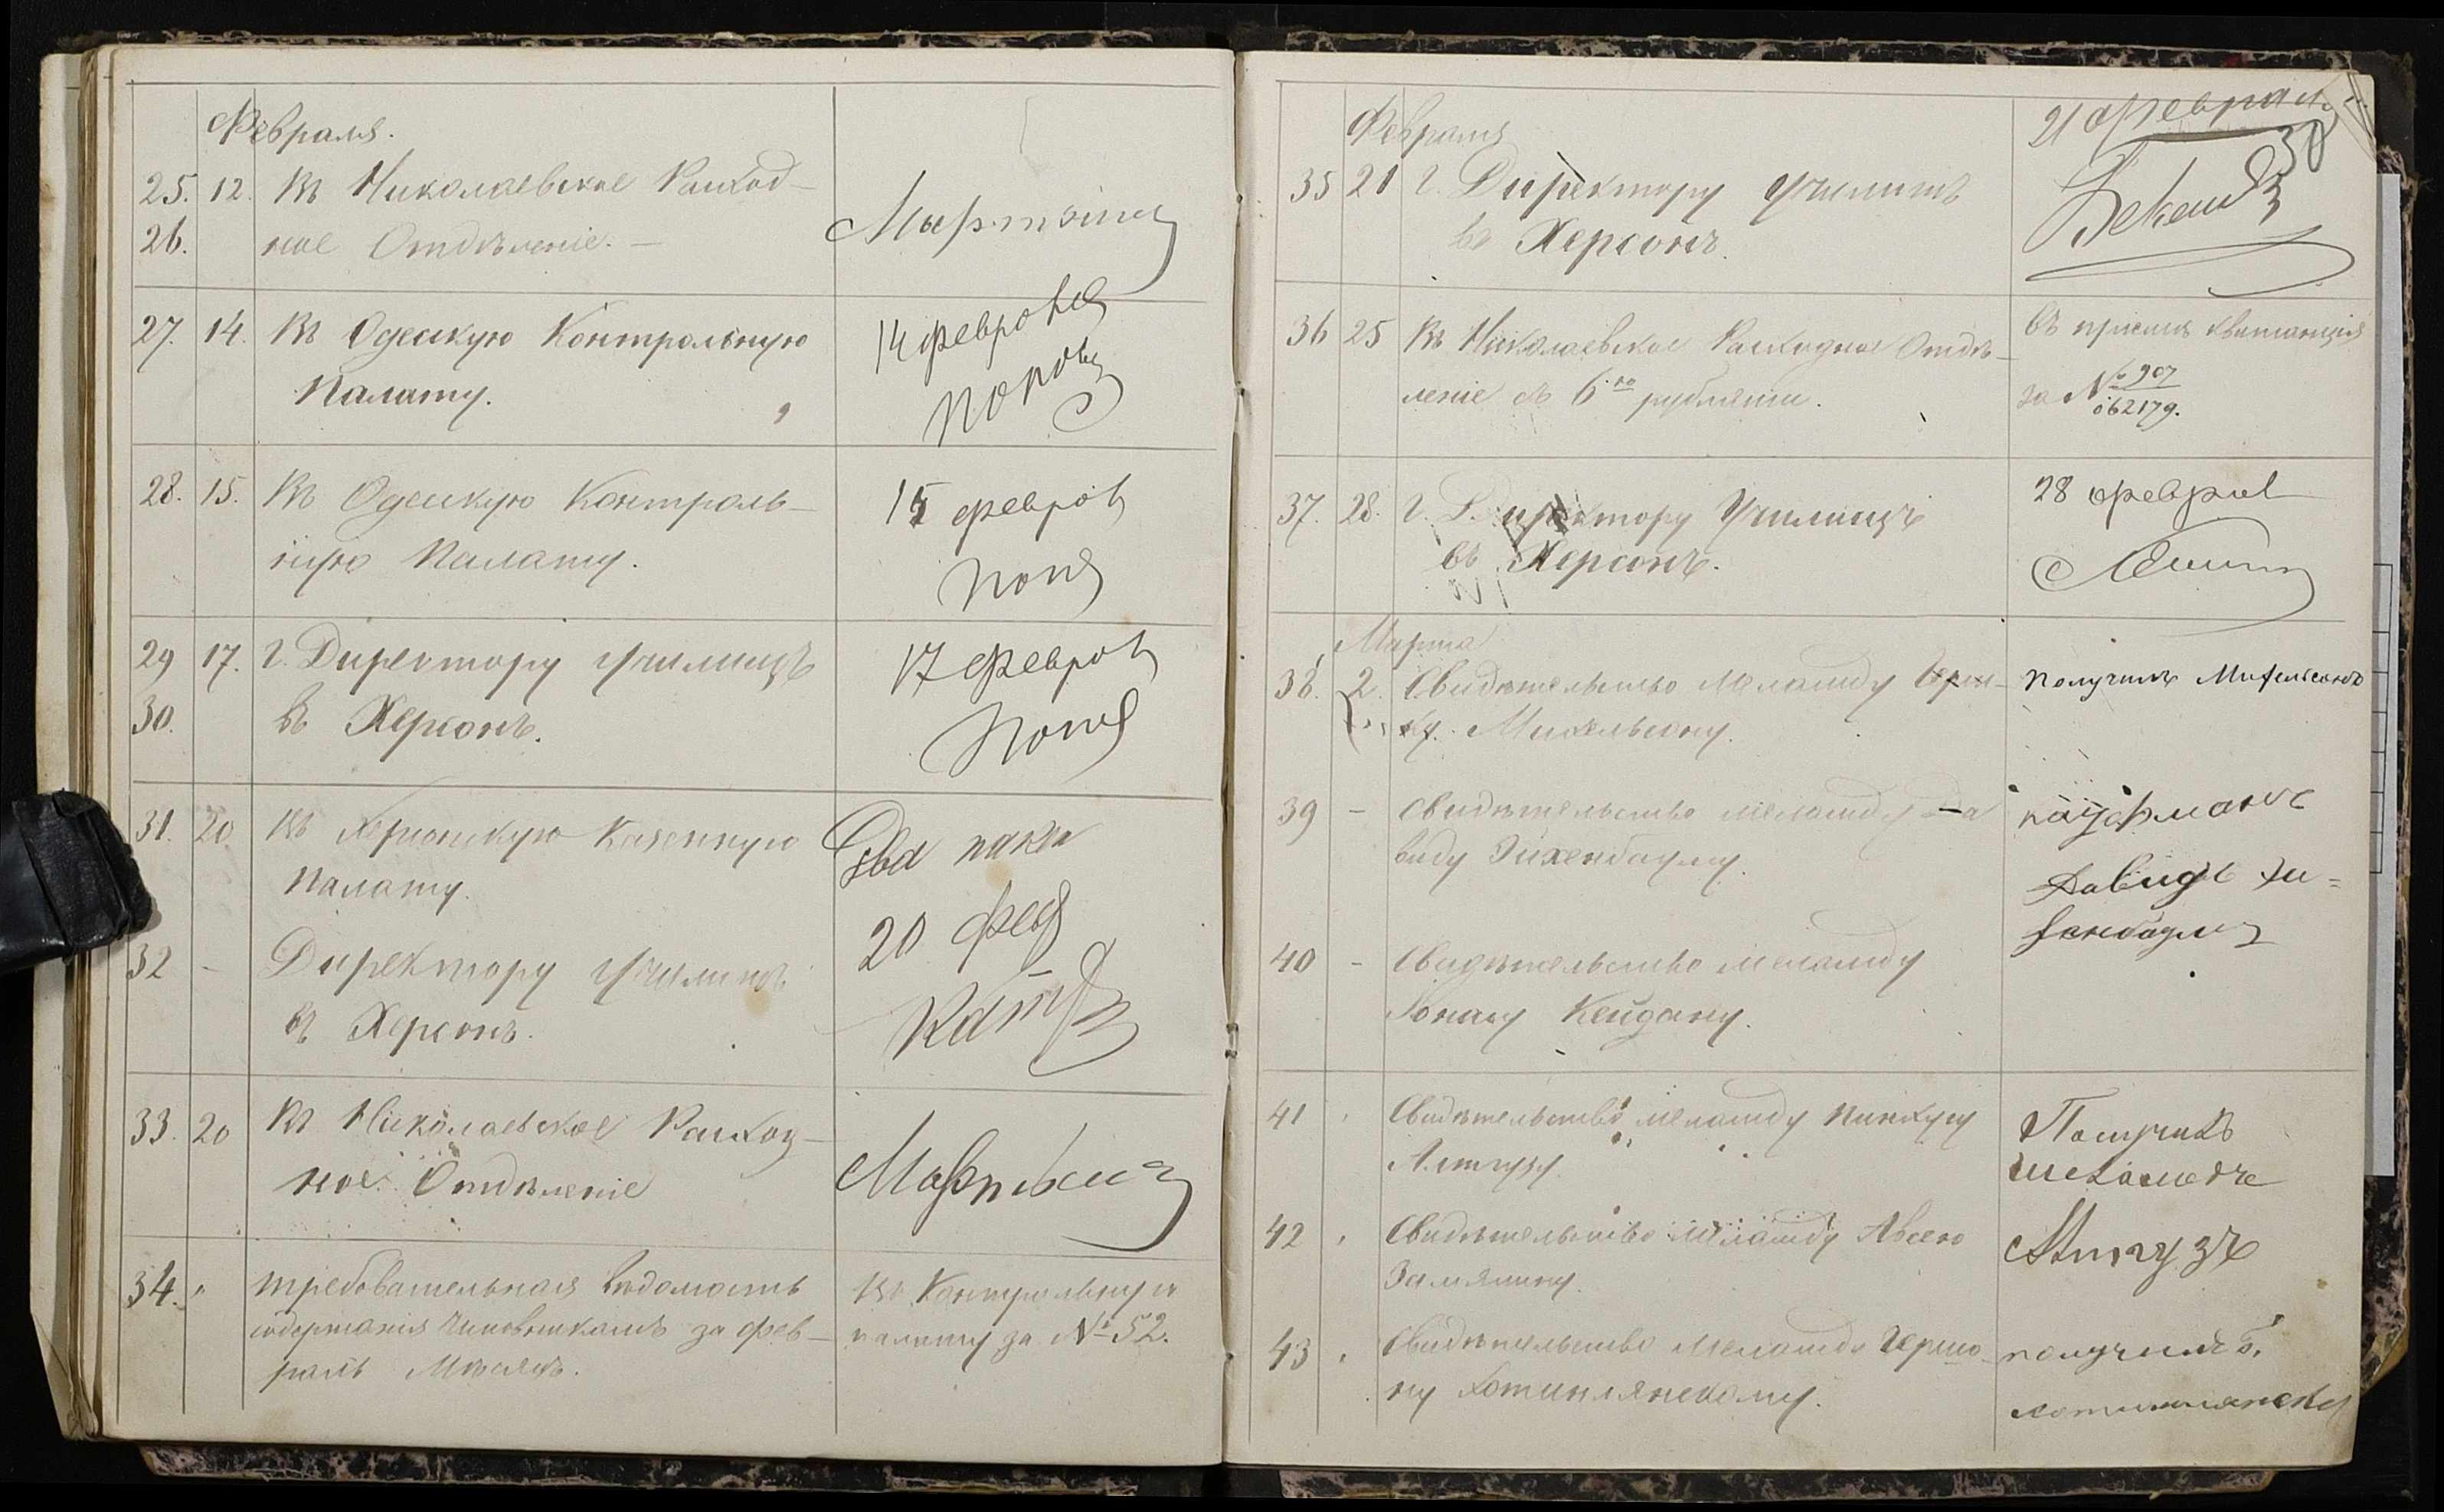 Февраля.
25. 12. Въ Николаевское Расход-
26. ное Отдѣленіе. —
Мартын
27. 14. Въ Одесскую Контрольную
Палату.
14 февраля
Попов
28. 15. Въ Одесскую Контроль-
ную Палату.
15 феврал
Попов
29 17. Г. Директору Училищъ
30. въ Херсонѣ.
17 Феврал
Попов
31. 20 Въ Херсонскую Казенную
Палату.
Два паке
20 Фев
32 - Директору Училищъ
въ Херсонѣ.
33. 20 Въ Николаевское Расход-
ное Отдѣленіе
Мартын
34. " Требовательная Вѣдомость
содержанія чиновникамъ за Фев-
раль Мѣсяцъ.
Въ Контрольную
палату за № 52.
Февраля
21 Февраля
30
35 21 Г. Директору Училищъ
въ Херсонъ.
36 25 Въ Николаевское Расходное Отдѣ-
леніе съ 6-ю рублями.
Въ пріемѣ квитанція
за № 907
062179.
37. 28. Г. Директору Училищъ
въ Херсонѣ.
28 Феврал
Марта
38. 2. Свидѣтельство Меламду Герш-
ку Михельсону.
Получилъ Михельсонъ
39 - Свидѣтельство меламду Да
виду Эйхенбауму.
Давидъ Эи=
хенбаум
40 - Свидѣтельство меламду
Іонасу Кейдану.
41 " Свидѣтельство меламду Пинкусу
Алтузу.
Получилъ
Алтузъ
42 " Свидѣтельство меламду Авсею
Замянину.
43 " Свидѣтельство Меламду Гершо-
ну Хотимлянскому.
получилъ Г.
хотимлянскій